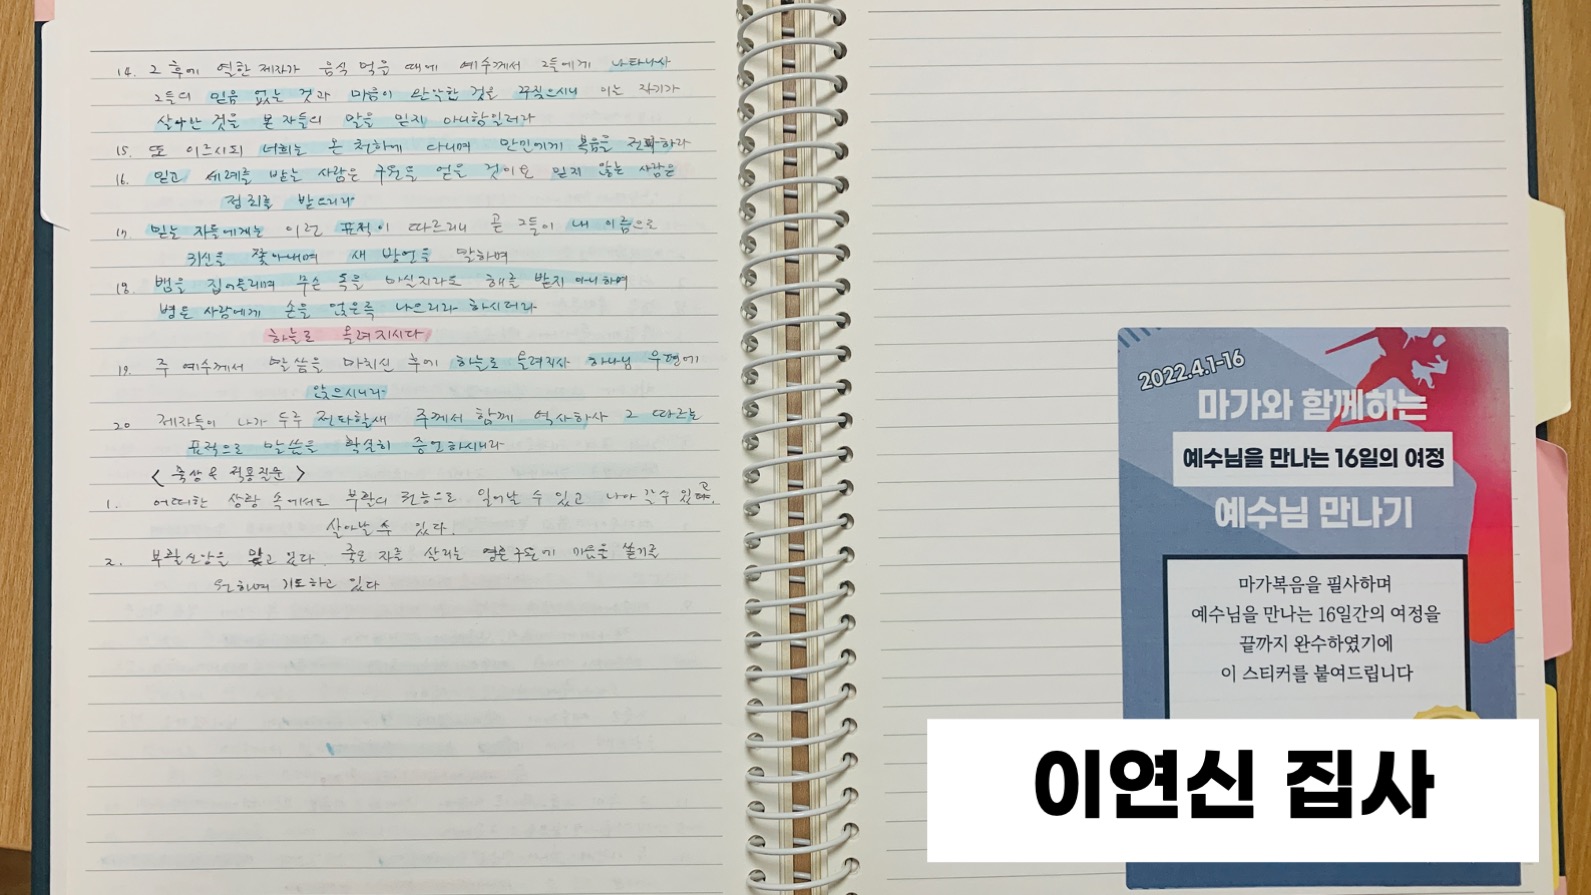 14. 그 후에 열한 제자가 음식 먹을 때에 예수께서 그들에게 나타나사
그들의 믿음 없는 것과 마음이 완악한 것을 꾸짖으시니 이는 자기가
살아난 것을 본 자들의 말을 믿지 아니함일러라
15. 또 이르시되 너희는 온 천하에 다니며 만민에게 복음을 전파하라
16. 믿고 세례를 받는 사람은 구원을 얻을 것이요 믿지 않는 사람은
정죄를 받으리라
17. 믿는 자들에게는 이런 표적이 따르리니 곧 그들이 내 이름으로
귀신을 쫓아내며 새 방언을 말하며
18. 뱀을 집어올리며 무슨 독을 마실지라도 해를 받지 아니하며
병든 사람에게 손을 얹은즉 나으리라 하시더라
하늘로 올려지시다
19. 주 예수께서 말씀을 마치신 후에 하늘로 올려지사 하나님 우편에
앉으시니라
20 제자들이 나가 두루 전파할새 주께서 함께 역사하사 그 따르는
표적으로 말씀을 확실히 증언하시니라
< 묵상 & 적용질문 >
1. 어떠한 상황 속에서도 부활의 권능으로 일어날 수 있고 나아 갈 수 있고,
살아날 수 있다.
2. 부활소망을 맞고 있다. 죽은 자를 살리는 영혼구원에 마음을 쏟기를
원하며 기도하고 있다
2022.4.1-16
마가와 함께하는
예수님을 만나는 16일의 여정
예수님 만나기
마가복음을 필사하며
예수님을 만나는 16일간의 여정을
끝까지 완수하였기에
이 스티커를 붙여드립니다
이연신 집사